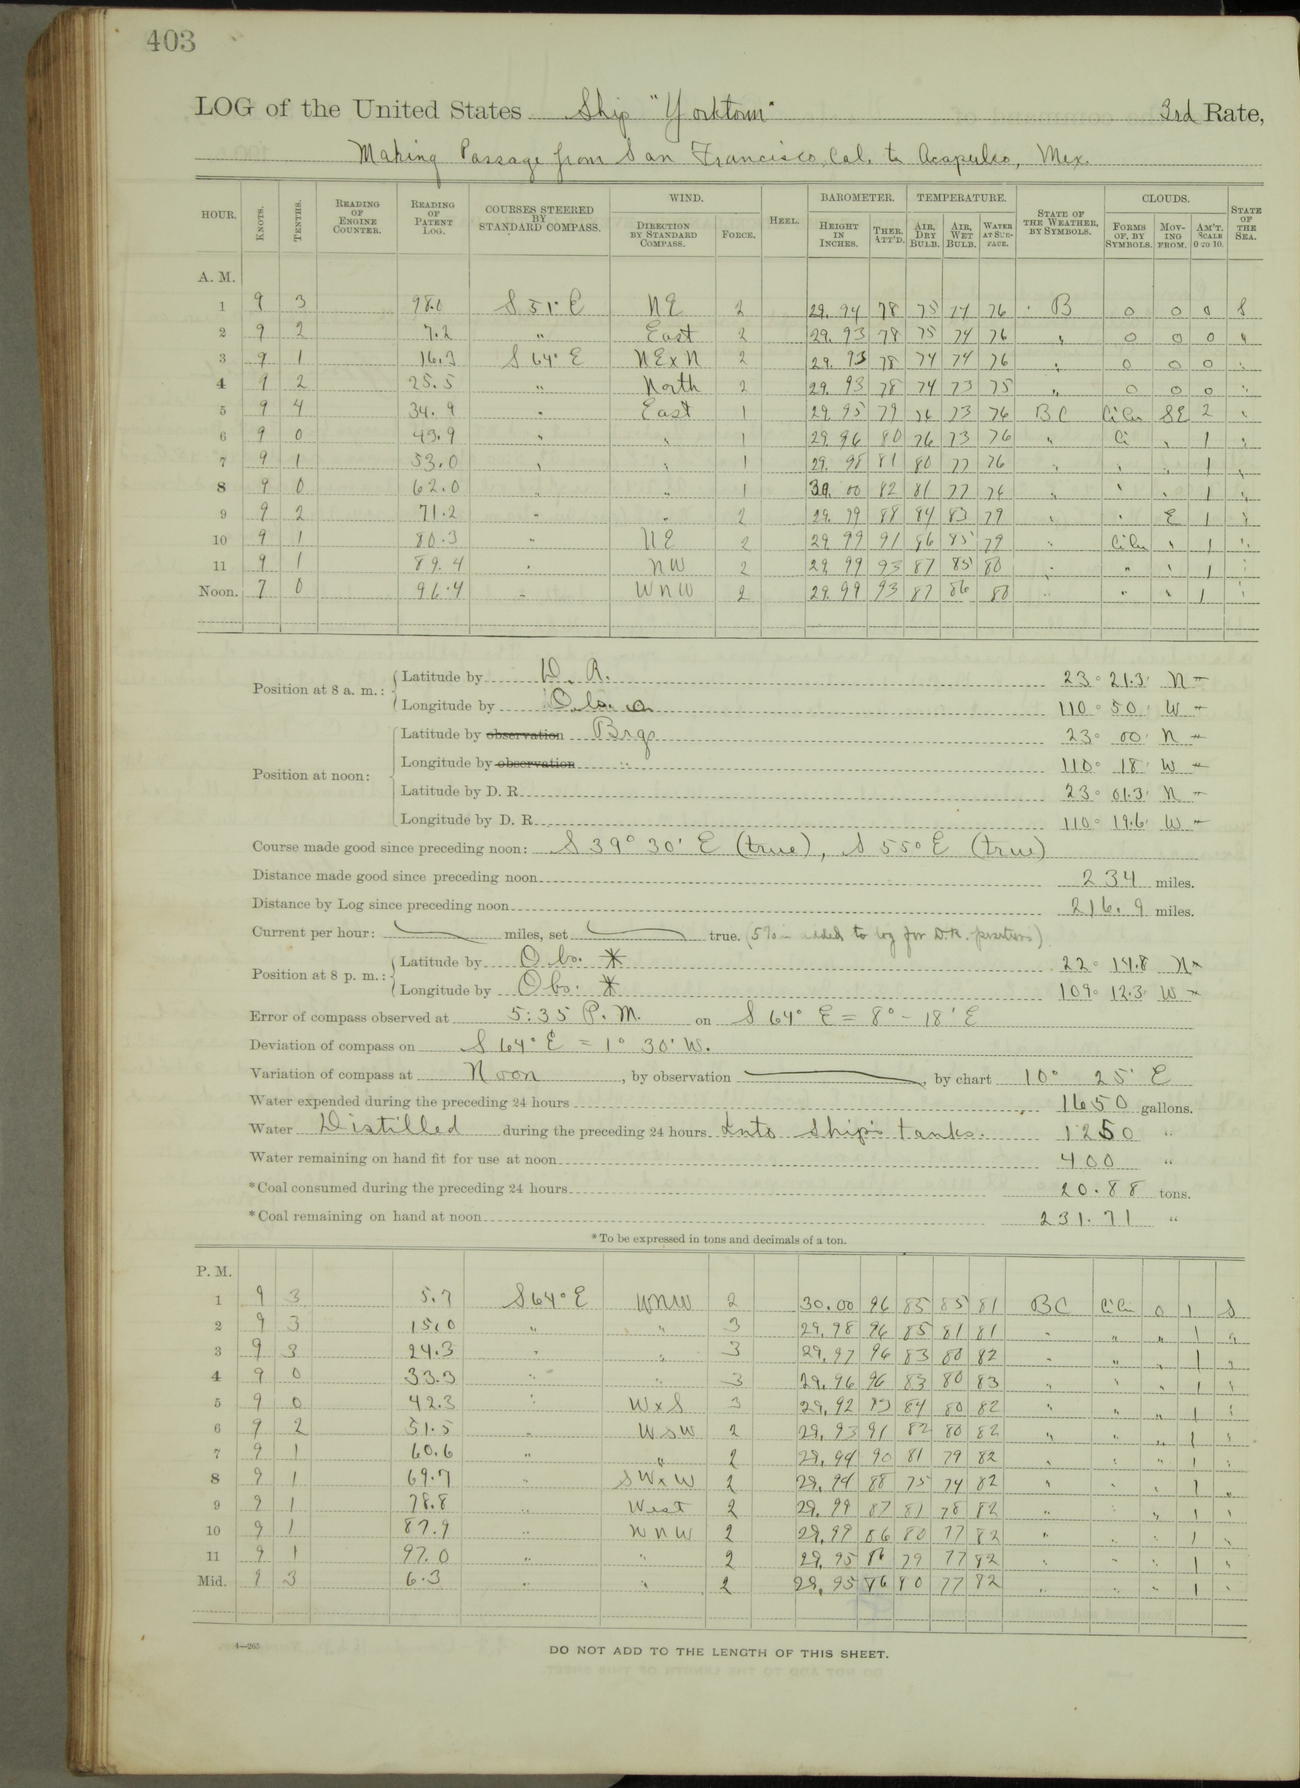 403
LOG of the United States Ship "Yorktown" 3rd Rate,
Making Passage from San Francisco, Cal. to Acapulco, Mex.
HOUR. KNOTS. TENTHS. READING OF ENGINE COUNTER. READING OF PATENT LOG. COURSES STEERED BY STANDARD COMPASS. WIND. DIRECTION BY STANDARD COMPASS. FORCE. HEEL. BAROMETER. HEIGHT IN INCHES. THER. ATT'D. TEMPERATURE. AIR, DRY BULB. AIR, WET BULB. WATER AT SUR-FACE. STATE OF THE WEATHER, BY SYMBOLS. CLOUDS. FORMS OF, BY SYMBOLS. MOV-ING FROM. AM'T. SCALE 0 TO 10. STATE OF THE SEA.
A. M.
1 9 3 98.0 S 51° E NE 2 29.94 78 75 74 76 B 0 0 0 S
2 9 2 7.2 " East 2 29.93 78 75 74 76 " 0 0 0 "
3 9 1 16.3 S 64° E NExN 2 29.93 78 74 74 76 " 0 0 0 "
4 9 2 25.5 " North 2 29.93 78 74 73 75 " 0 0 0 "
5 9 4 34.9 " East 1 29.95 79 76 73 76 BC CiCu SE 2 "
6 9 0 43.9 " " 1 29.96 80 76 73 76 " Ci " 1 "
7 9 1 53.0 " " 1 29.98 81 80 77 76 " " " 1 "
8 9 0 62.0 " " 1 30.00 82 81 77 76 " " " 1 "
9 9 2 71.2 " " 2 29.99 88 84 83 79 " " E 1 "
10 9 1 80.3 " NE 2 29.99 91 86 85 79 " CiCu " 1 "
11 9 1 89.4 " NW 2 29.99 93 87 85 80 " " " 1 "
Noon. 7 0 96.4 " WNW 2 29.99 93 87 86 80 " " " 1 "
Position at 8 a. m.: Latitude by D. R. 23° 21.3' N
Longitude by Obs. 110° 50' W
Position at noon: Latitude by observation Brgs 23° 00' N
Longitude by observation " 110° 18' W
Latitude by D. R. 23° 01.3' N
Longitude by D. R. 110° 19.6' W
Course made good since preceding noon: S 39° 30' E (true), S 55° E (true)
Distance made good since preceding noon 234 miles.
Distance by Log since preceding noon 216.9 miles.
Current per hour: miles, set true. (5% added to log for D.R. positions)
Position at 8 p. m.: Latitude by Obs. * 22° 14.8 N
Longitude by Obs. * 109° 12.3' W
Error of compass observed at 5:35 P.M. on S 64° E = 8° - 18' E
Deviation of compass on S 64° E = 1° 30' W.
Variation of compass at Noon, by observation , by chart 10° 25' E
Water expended during the preceding 24 hours 1650 gallons.
Water Distilled during the preceding 24 hours Into Ship's tanks. 1250 "
Water remaining on hand fit for use at noon 400 "
*Coal consumed during the preceding 24 hours 20.88 tons.
*Coal remaining on hand at noon 231.71 "
*To be expressed in tons and decimals of a ton.
P. M.
1 9 3 5.7 S 64° E WNW 2 30.00 96 85 85 81 BC CiCu 0 1 S
2 9 3 15.0 " " 3 29.98 96 85 81 81 " " " 1 "
3 9 3 24.3 " " 3 29.97 96 83 80 82 " " " 1 "
4 9 0 33.3 " " 3 29.96 96 83 80 83 " " " 1 "
5 9 0 42.3 " WxS 3 29.92 93 84 80 82 " " " 1 "
6 9 2 51.5 " WSW 2 29.93 91 82 80 82 " " " 1 "
7 9 1 60.6 " " 2 29.94 90 81 79 82 " " " 1 "
8 9 1 69.7 " SWxW 2 29.94 88 75 74 82 " " " 1 "
9 9 1 78.8 " West 2 29.99 87 81 78 82 " " " 1 "
10 9 1 87.9 " WNW 2 29.99 86 80 77 82 " " " 1 "
11 9 1 97.0 " " 2 29.95 86 79 77 82 " " " 1 "
Mid. 9 3 6.3 " " 2 29.95 86 80 77 82 " " " 1 "
4—265
DO NOT ADD TO THE LENGTH OF THIS SHEET.